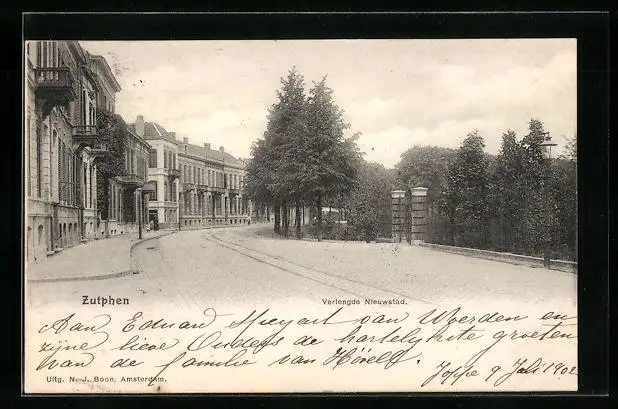 Zutphen
Verlengde Nieuwstad.
Aan Eduard van Woerden en
zijne lieve Ouders de hartelykste groeten
van de familie van
Joppe 9 Juli 1902
Uitg. N. J. Boon, Amsterdam.